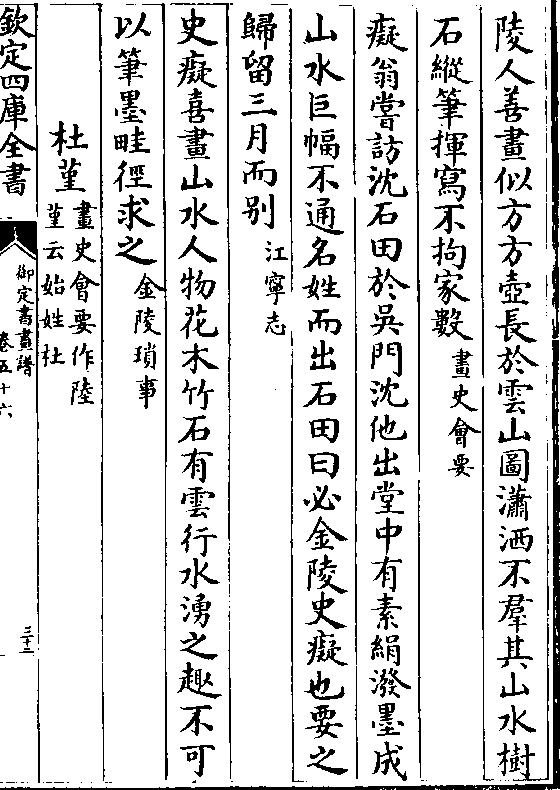 陵人善畫似方方壺長於雲山圖瀟洒不羣其山水樹
石縱筆揮寫不拘家數畫史會要
癡翁嘗訪沈石田於吳門沈他出堂中有素絹潑墨成
山水巨幅不通名姓而出石田曰必金陵史癡也要之
歸留三月而别江寧志
史癡喜畫山水人物花木竹石有雲行水湧之趣不可
以筆墨畦徑求之金陵瑣事
杜堇畫史會要作陸
堇云始姓杜
欽定四庫全書
御定書畫譜
卷五十六
三十二